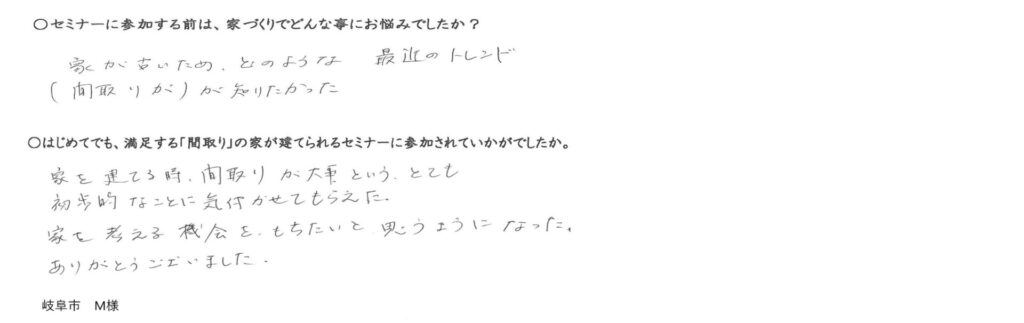 〇セミナーに参加する前は、家づくりでどんな事にお悩みでしたか？
家が古いため、どのような 最近のトレンド
(間取りが)が知りたかった
〇はじめてでも、満足する「間取り」の家が建てられるセミナーに参加されていかがでしたか。
家を建てる時、間取りが大事という、とても
初歩的なことに気付かせてもらえた。
家を考える機会を、もちたいと思うようになった。
ありがとうございました。
岐阜市 M様